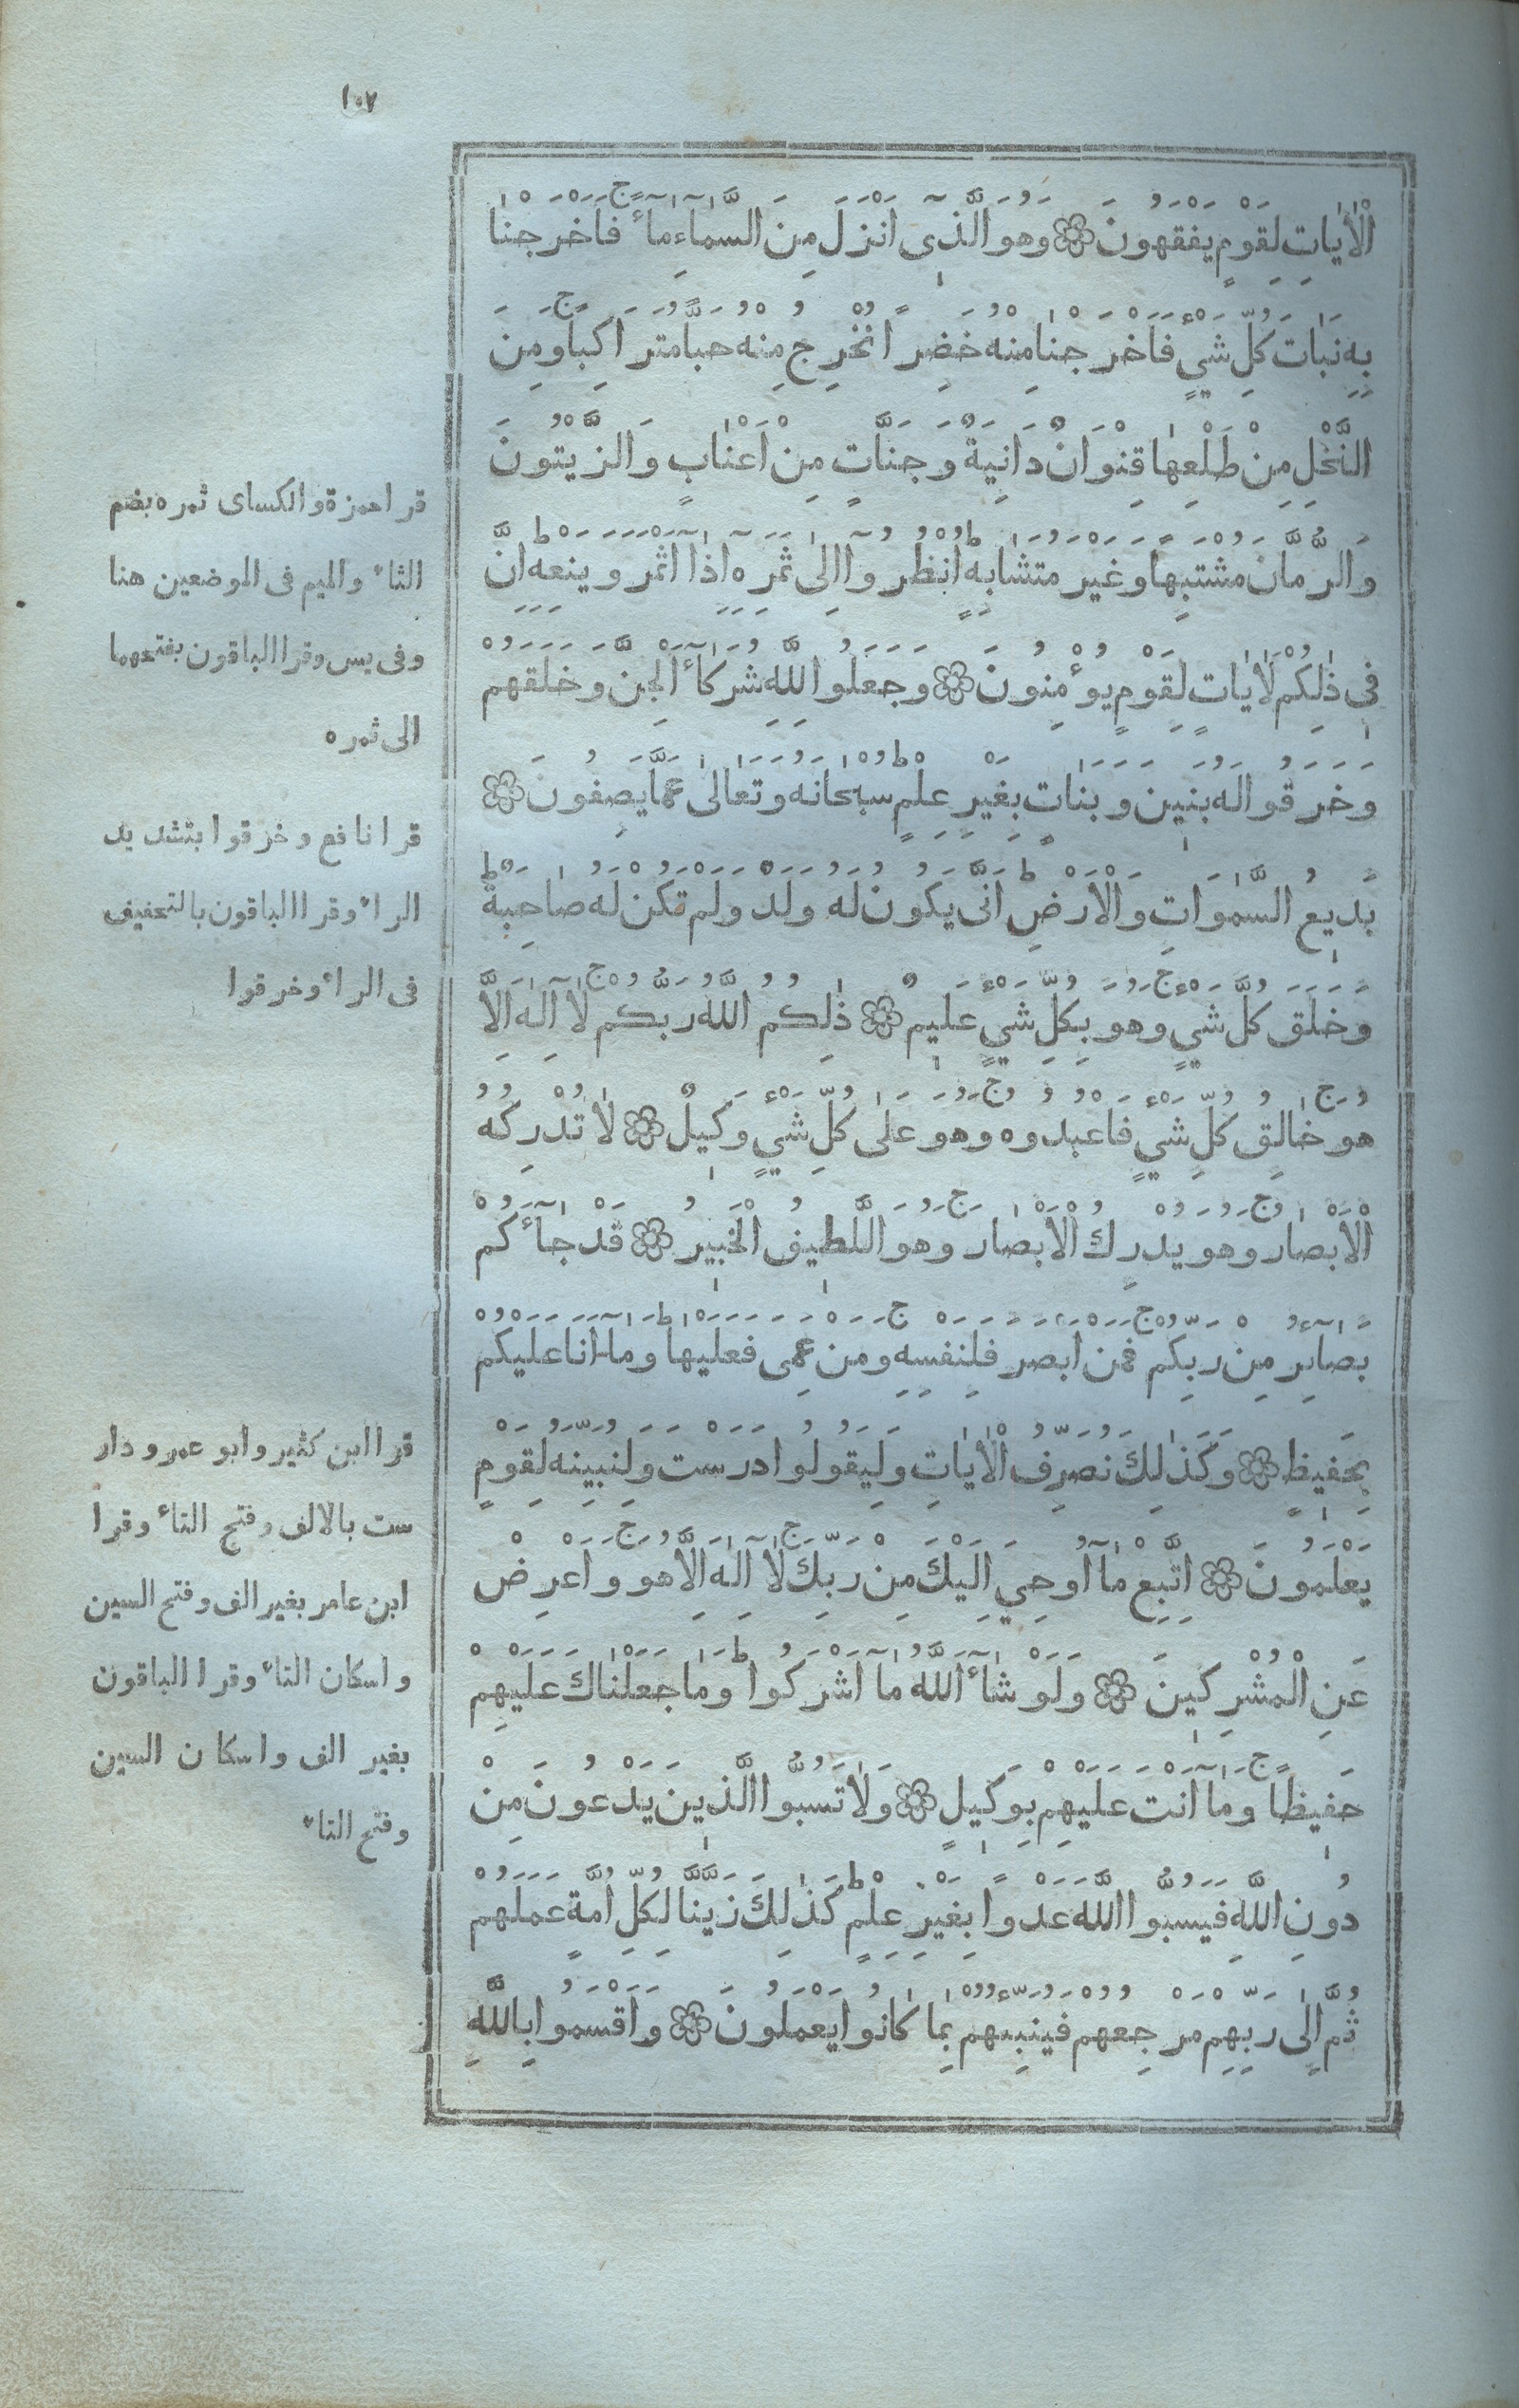 ١٠٧
الْاٰيَاتِ لِقَوْمٍ يَفْقَهُونَ ۞ وَهُوَ الَّذٖٓى اَنْزَلَ مِنَ السَّمَاءِ مَآءً ج فَاَخْرَجْنَا
بِهٖ نَبَاتَ كُلِّ شَيْءٍ فَاَخْرَجْنَا مِنْهُ خَضِرًا نُخْرِجُ مِنْهُ حَبًّا مُتَرَاكِبًا ج وَمِنَ
النَّخْلِ مِنْ طَلْعِهَا قِنْوَانٌ دَانِيَةٌ وَجَنَّاتٍ مِنْ اَعْنَابٍ وَالزَّيْتُونَ
وَالرُّمَّانَ مُشْتَبِهًا وَغَيْرَ مُتَشَابِهٍ ط اُنْظُرُوٓا اِلٰى ثَمَرِهٖٓ اِذَآ اَثْمَرَ وَيَنْعِهٖ ط اِنَّ
فٖى ذٰلِكُمْ لَاٰيَاتٍ لِقَوْمٍ يُؤْمِنُونَ ۞ وَجَعَلُوا لِلّٰهِ شُرَكَآءَ الْجِنَّ وَخَلَقَهُمْ
وَخَرَقُوا لَهُ بَنٖينَ وَبَنَاتٍ بِغَيْرِ عِلْمٍ ط سُبْحَانَهُ وَتَعَالٰى عَمَّا يَصِفُونَ ۞
بَدٖيعُ السَّمٰوَاتِ وَالْاَرْضِ ط اَنّٰى يَكُونُ لَهُ وَلَدٌ وَلَمْ تَكُنْ لَهُ صَاحِبَةٌ ط
وَخَلَقَ كُلَّ شَيْءٍ ج وَهُوَ بِكُلِّ شَيْءٍ عَلٖيمٌ ۞ ذٰلِكُمُ اللّٰهُ رَبُّكُمْ ج لَآ اِلٰهَ اِلَّا
هُوَ ج خَالِقُ كُلِّ شَيْءٍ فَاعْبُدُوهُ ج وَهُوَ عَلٰى كُلِّ شَيْءٍ وَكٖيلٌ ۞ لَا تُدْرِكُهُ
الْاَبْصَارُ ج وَهُوَ يُدْرِكُ الْاَبْصَارَ ج وَهُوَ اللَّطٖيفُ الْخَبٖيرُ ۞ قَدْ جَآءَكُمْ
بَصَآئِرُ مِنْ رَبِّكُمْ ج فَمَنْ اَبْصَرَ فَلِنَفْسِهٖ ج وَمَنْ عَمِىَ فَعَلَيْهَا ط وَمَآ اَنَا عَلَيْكُمْ
بِحَفٖيظٍ ۞ وَكَذٰلِكَ نُصَرِّفُ الْاٰيَاتِ وَلِيَقُولُوا دَرَسْتَ وَلِنُبَيِّنَهُ لِقَوْمٍ
يَعْلَمُونَ ۞ اِتَّبِعْ مَآ اُوحِيَ اِلَيْكَ مِنْ رَبِّكَ ج لَآ اِلٰهَ اِلَّا هُوَ ج وَاَعْرِضْ
عَنِ الْمُشْرِكٖينَ ۞ وَلَوْ شَآءَ اللّٰهُ مَآ اَشْرَكُوا ط وَمَا جَعَلْنَاكَ عَلَيْهِمْ
حَفٖيظًا ج وَمَآ اَنْتَ عَلَيْهِمْ بِوَكٖيلٍ ۞ وَلَا تَسُبُّوا الَّذٖينَ يَدْعُونَ مِنْ
دُونِ اللّٰهِ فَيَسُبُّوا اللّٰهَ عَدْوًا بِغَيْرِ عِلْمٍ ط كَذٰلِكَ زَيَّنَّا لِكُلِّ اُمَّةٍ عَمَلَهُمْ
ثُمَّ اِلٰى رَبِّهِمْ مَرْجِعُهُمْ فَيُنَبِّئُهُمْ بِمَا كَانُوا يَعْمَلُونَ ۞ وَاَقْسَمُوا بِاللّٰهِ
قرا حمزة والكساى ثمره بضم
الثاء والميم فى الموضعين هنا
وفى يس وقرا الباقون بفتحهما
الى ثمره
قرا نافع وخرقوا بتشديد
الراء وقرا الباقون بالتخفيف
فى الراء وخرقوا
قرا ابن كثير وابو عمرو دار
ست بالالف وفتح التاء وقرا
ابن عامر بغير الف وفتح السين
واسكان التاء وقرا الباقون
بغير الف واسكان السين
وفتح التاء